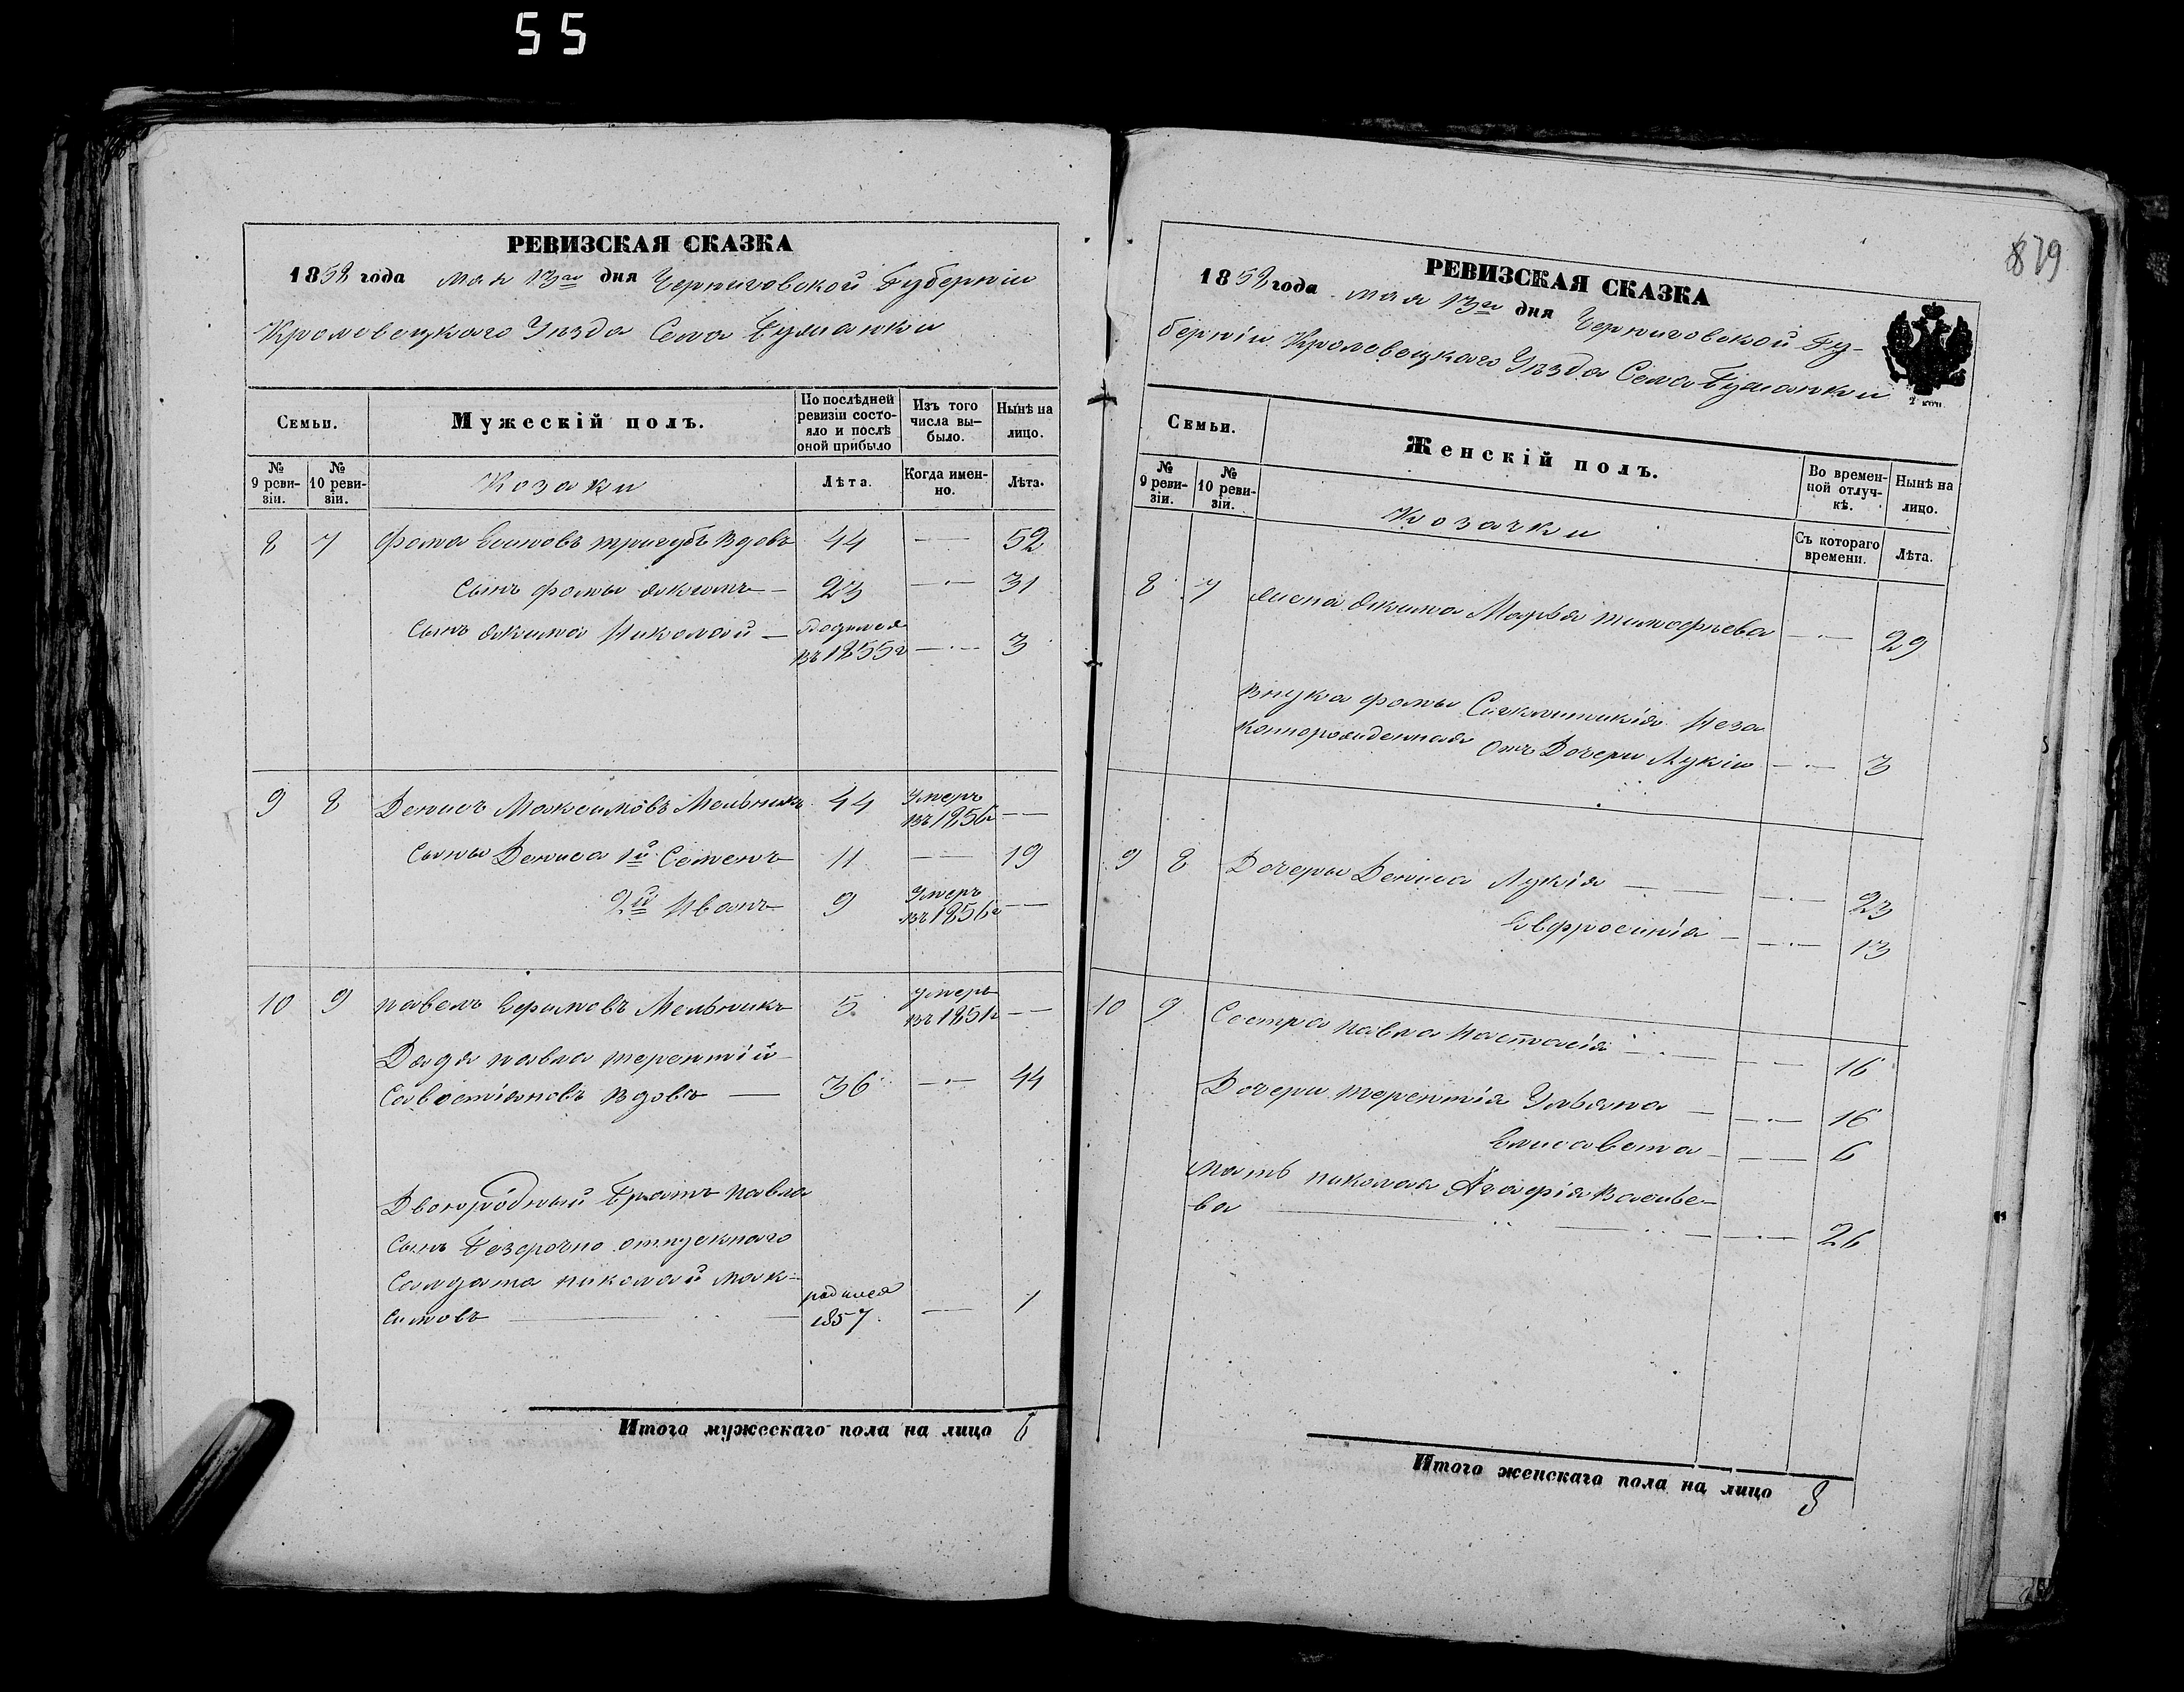 55
РЕВИЗСКАЯ СКАЗКА
1858 года мая 13го дня Черниговской Губерніи
Кролевецкаго Уѣзда Села Тулиголки
Семьи.
Мужескій полъ.
По послѣдней ревизіи состояло и послѣ оной прибыло
Изъ того числа вы-было.
Нынѣ на лицо.
№ 9 реви-зіи.
№ 10 реви-зіи.
Козаки
Лѣта.
Когда имен-но.
Лѣта.
8 7 Фома Есиповъ Тригубъ Вдовъ 44 — 52
Сынъ Фомы Якимъ — 23 — 31
Сынъ Якима Николай — родился въ 1855г — 3
9 8 Денисъ Максимовъ Мельникъ 44 Умеръ въ 1856г —
Сыны Дениса 1й Семенъ 11 — 19
2й Иванъ 9 Умеръ въ 1856г —
10 9 Павелъ Ефимовъ Мельникъ 5 умеръ въ 1851г —
Дядя Павла Терентій
Савостіяновъ Вдовъ — 36 — 44
Двоюродный Братъ Павла
Сынъ Безсрочно отпускного
Солдата Николай Мак-
симовъ — родился 1857 — 1
Итого мужескаго пола на лицо 6
879
РЕВИЗСКАЯ СКАЗКА
1858 года мая 13го дня Черниговской Гу-
берніи Кролевецкаго Уѣзда Села
2 коп.
Семьи.
Женскій полъ.
Во времен-ной отлуч-кѣ.
Нынѣ на лицо.
№ 9 реви-зіи.
№ 10 реви-зіи.
Козачки
Съ котораго времени.
Лѣта.
8 7 Жена Якима Марья Тимофѣева — 29
Внука Фомы Синклитикія Неза
коннорожденная отъ Дочери Лукіи — 3
9 8 Дочеры Дениса Лукія — 23
Евфросинія — 13
10 9 Сестра Павла Настасія — 16
Дочери Терентія Ульяна — 16
Елисавета — 6
Мать Николая Агафія Василье-
ва — 26
Итого женскаго пола на лицо 8